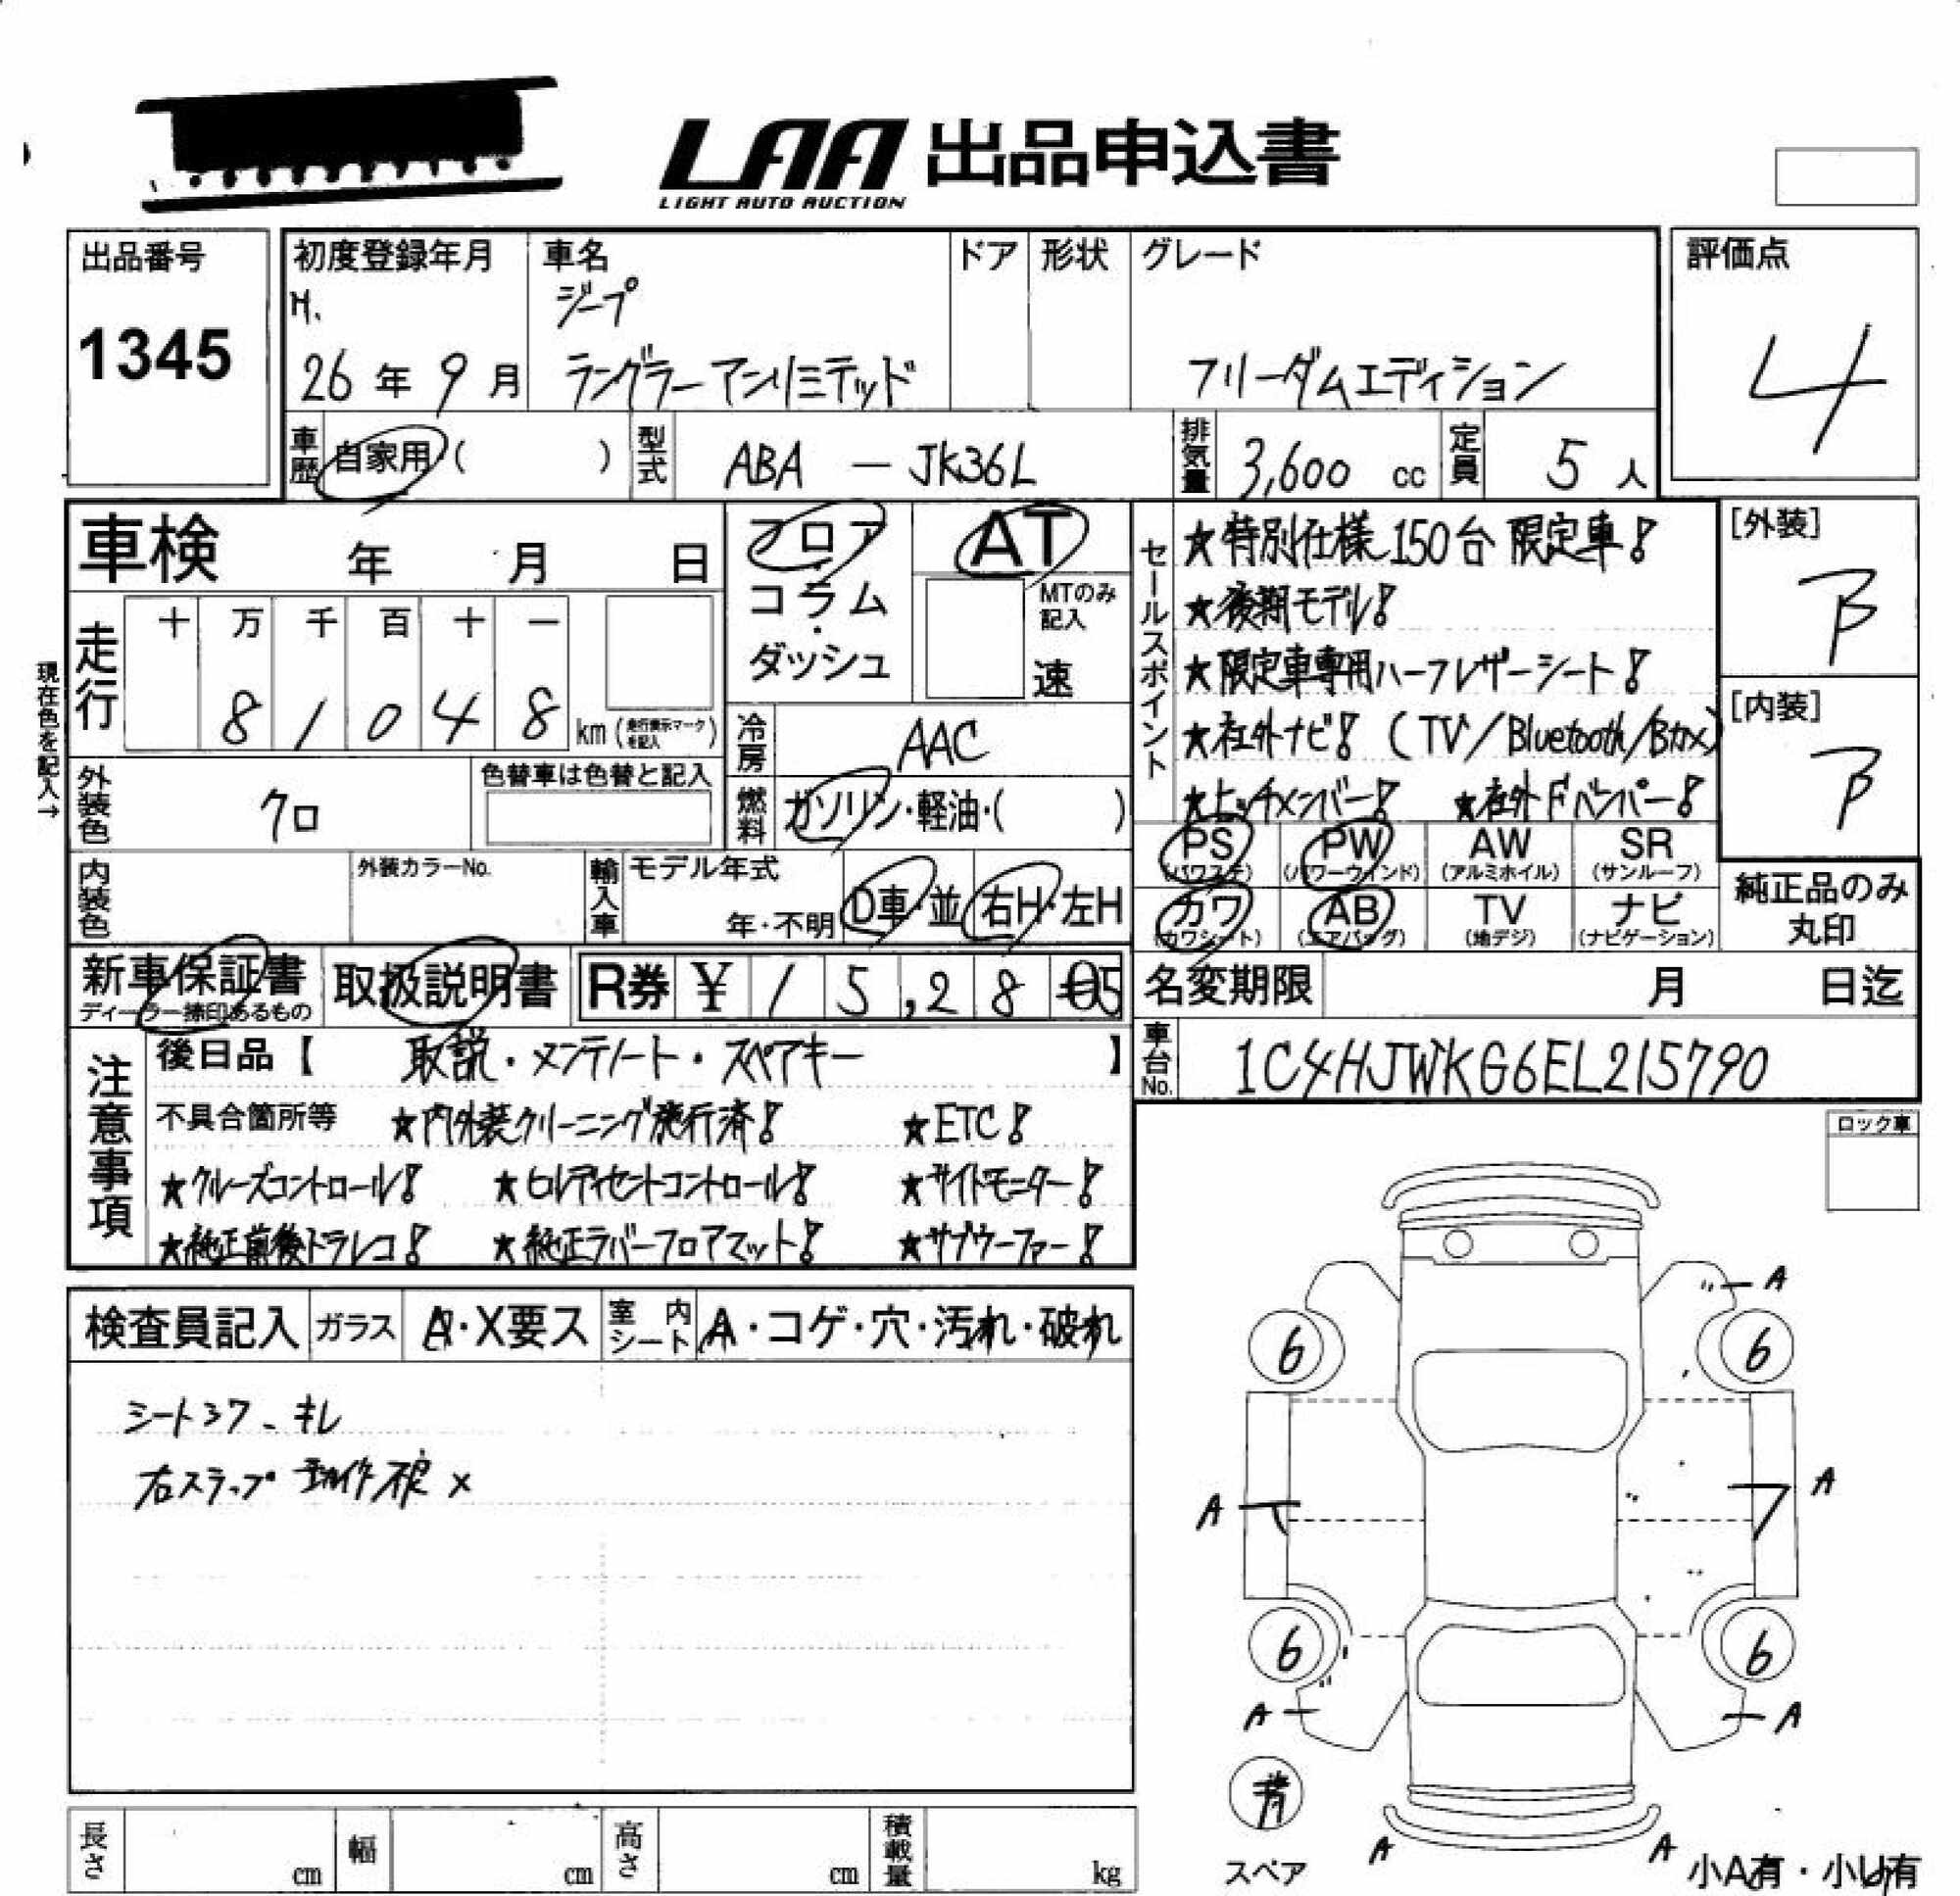 LAA 出品申込書
LIGHT AUTO AUCTION
出品番号
1345
初度登録年月
H.
26年9月
車名
ジープ
ラングラーアンリミテッド
ドア
形状
グレード
フリーダムエディション
評価点
4
車歴 自家用( )
型式 ABA - JK36L
排気量 3,600 cc
定員 5人
車検 年 月 日
フロア・コラム・ダッシュ
AT
MTのみ記入
速
セールスポイント
★特別仕様150台限定車!
★後期モデル!
★限定車専用ハーフレザーシート!
★社外ナビ! (TV/Bluetooth/Bカメ)
★ヒッチメンバー! ★社外Fバンパー!
[外装]
B
[内装]
B
現在色を記入→
走行
十 万 千 百 十 一
8 1 0 4 8 km (走行表示マークを記入)
冷房 AAC
外装色 クロ
色替車は色替と記入
燃料 ガソリン・軽油・( )
PS (パワステ) PW (パワーウインド) AW (アルミホイル) SR (サンルーフ)
カワ (カワシート) AB (エアバッグ) TV (地デジ) ナビ (ナビゲーション)
純正品のみ丸印
内装色
外装カラーNo.
輸入車
モデル年式
年・不明
D車・並 右H・左H
新車保証書
ディーラー捺印あるもの
取扱説明書
R券 ¥ 1 5,2 8 5
名変期限 月 日迄
車台No. 1C4HJWKG6EL215790
注意事項
後日品【 取説・メンテノート・スペアキー 】
不具合箇所等 ★内外装クリーニング施行済! ★ETC!
★クルーズコントロール! ★ヒルディセントコントロール! ★サイドモニター!
★純正前後ドラレコ! ★純正ラバーフロアマット! ★サブウーファー!
ロック車
検査員記入 ガラス A・X要ス 室内シート A・コゲ・穴・汚れ・破れ
シートスレ、キレ
右ステップ 動作不良 ×
A
6 6
A A
6 6
A A
スペア
A A
小A有・小U有
長さ cm 幅 cm 高さ cm 積載量 kg